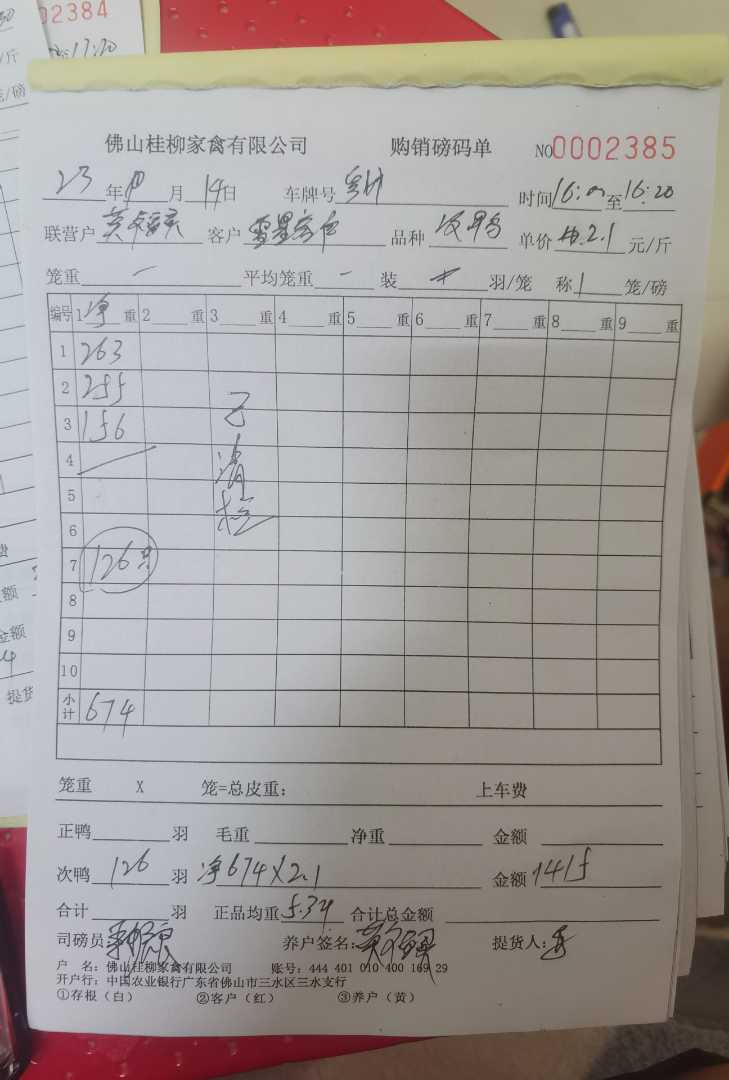 02384
17:20
/斤
/磅
佛山桂柳家禽有限公司 购销磅码单 NO0002385
23年10月14日 车牌号 时间16:00至16:20
联营户 客户 品种 次鸭 单价 2.1元/斤
笼重 一 平均笼重 一 装 羽/笼 称 1 笼/磅
编号 1净重 2重 3重 4重 5重 6重 7重 8重 9重
1 263
2 255
3 156 已
4 清
5
6
7 126只
8
9
10
小计 674
笼重 X 笼=总皮重: 上车费
正鸭 羽 毛重 净重 金额
次鸭 126 羽 净674X2.1 金额 1415
合计 羽 正品均重 5.34 合计总金额
司磅员: 养户签名: 提货人:
户 名: 佛山桂柳家禽有限公司 账号: 444 401 010 400 169 29
开户行: 中国农业银行广东省佛山市三水区三水支行
①存根（白） ②客户（红） ③养户（黄）